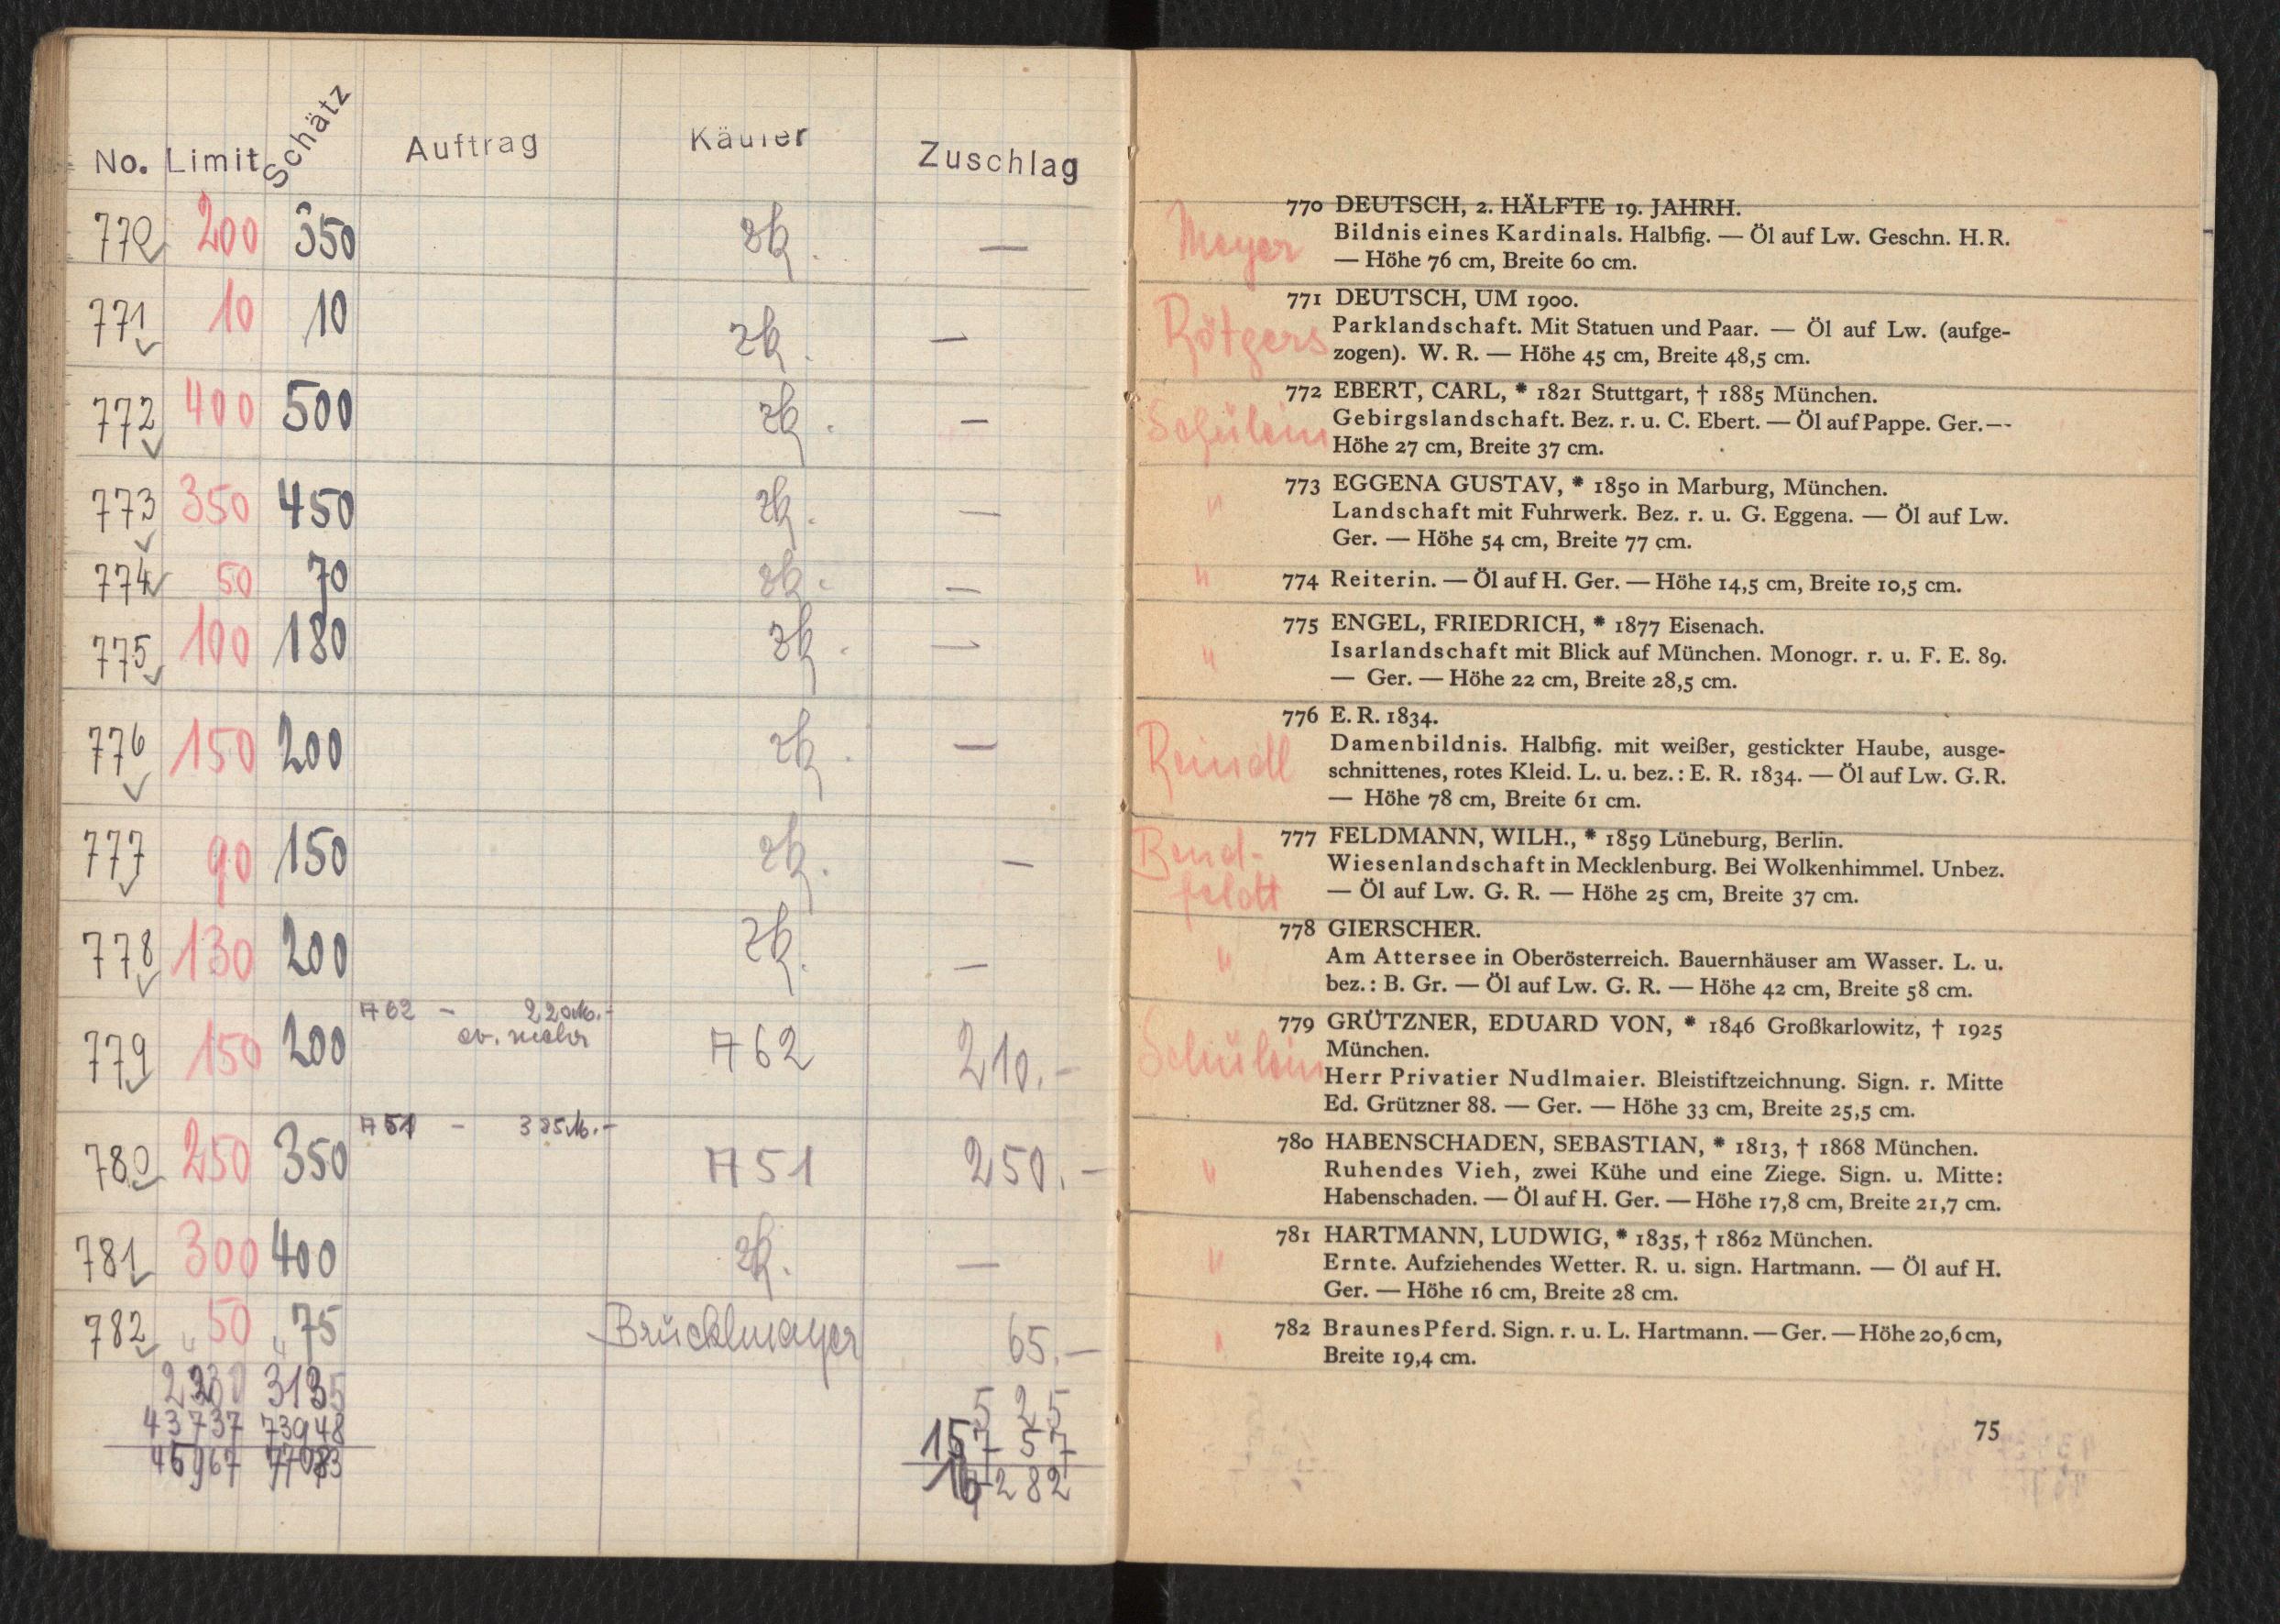 No. Limit Schätz Auftrag Käufer Zuschlag
770 200 350 zk. —
771 10 10 zk. —
772 400 500 zk. —
773 350 450 zk. —
774 50 70 zk. —
775 100 180 zk. —
776 150 200 zk. —
777 90 150 zk. —
778 130 200 zk. —
A 62 – 220M.-
ev. mehr
779 150 200 A 62 210.-
A 51 – 325M.-
780 250 350 A 51 250.-
781 300 400 zk. —
782 50 75 Brücklmayer 65.—
2230 3135 525
43737 73948 15757
45967 77083 16282
Meyer
770 DEUTSCH, 2. HÄLFTE 19. JAHRH.
Bildnis eines Kardinals. Halbfig. — Öl auf Lw. Geschn. H. R.
— Höhe 76 cm, Breite 60 cm.
Rötgers
771 DEUTSCH, UM 1900.
Parklandschaft. Mit Statuen und Paar. — Öl auf Lw. (aufge-
zogen). W. R. — Höhe 45 cm, Breite 48,5 cm.
Schülein
772 EBERT, CARL, * 1821 Stuttgart, † 1885 München.
Gebirgslandschaft. Bez. r. u. C. Ebert. — Öl auf Pappe. Ger. —
Höhe 27 cm, Breite 37 cm.
"
773 EGGENA GUSTAV, * 1850 in Marburg, München.
Landschaft mit Fuhrwerk. Bez. r. u. G. Eggena. — Öl auf Lw.
Ger. — Höhe 54 cm, Breite 77 cm.
"
774 Reiterin. — Öl auf H. Ger. — Höhe 14,5 cm, Breite 10,5 cm.
"
775 ENGEL, FRIEDRICH, * 1877 Eisenach.
Isarlandschaft mit Blick auf München. Monogr. r. u. F. E. 89.
— Ger. — Höhe 22 cm, Breite 28,5 cm.
Reindl
776 E. R. 1834.
Damenbildnis. Halbfig. mit weißer, gestickter Haube, ausge-
schnittenes, rotes Kleid. L. u. bez.: E. R. 1834. — Öl auf Lw. G. R.
— Höhe 78 cm, Breite 61 cm.
Bend-
feldt
777 FELDMANN, WILH., * 1859 Lüneburg, Berlin.
Wiesenlandschaft in Mecklenburg. Bei Wolkenhimmel. Unbez.
— Öl auf Lw. G. R. — Höhe 25 cm, Breite 37 cm.
"
778 GIERSCHER.
Am Attersee in Oberösterreich. Bauernhäuser am Wasser. L. u.
bez.: B. Gr. — Öl auf Lw. G. R. — Höhe 42 cm, Breite 58 cm.
Schülein
779 GRÜTZNER, EDUARD VON, * 1846 Großkarlowitz, † 1925
München.
Herr Privatier Nudlmaier. Bleistiftzeichnung. Sign. r. Mitte
Ed. Grützner 88. — Ger. — Höhe 33 cm, Breite 25,5 cm.
"
780 HABENSCHADEN, SEBASTIAN, * 1813, † 1868 München.
Ruhendes Vieh, zwei Kühe und eine Ziege. Sign. u. Mitte:
Habenschaden. — Öl auf H. Ger. — Höhe 17,8 cm, Breite 21,7 cm.
"
781 HARTMANN, LUDWIG, * 1835, † 1862 München.
Ernte. Aufziehendes Wetter. R. u. sign. Hartmann. — Öl auf H.
Ger. — Höhe 16 cm, Breite 28 cm.
"
782 Braunes Pferd. Sign. r. u. L. Hartmann. — Ger. — Höhe 20,6 cm,
Breite 19,4 cm.
75